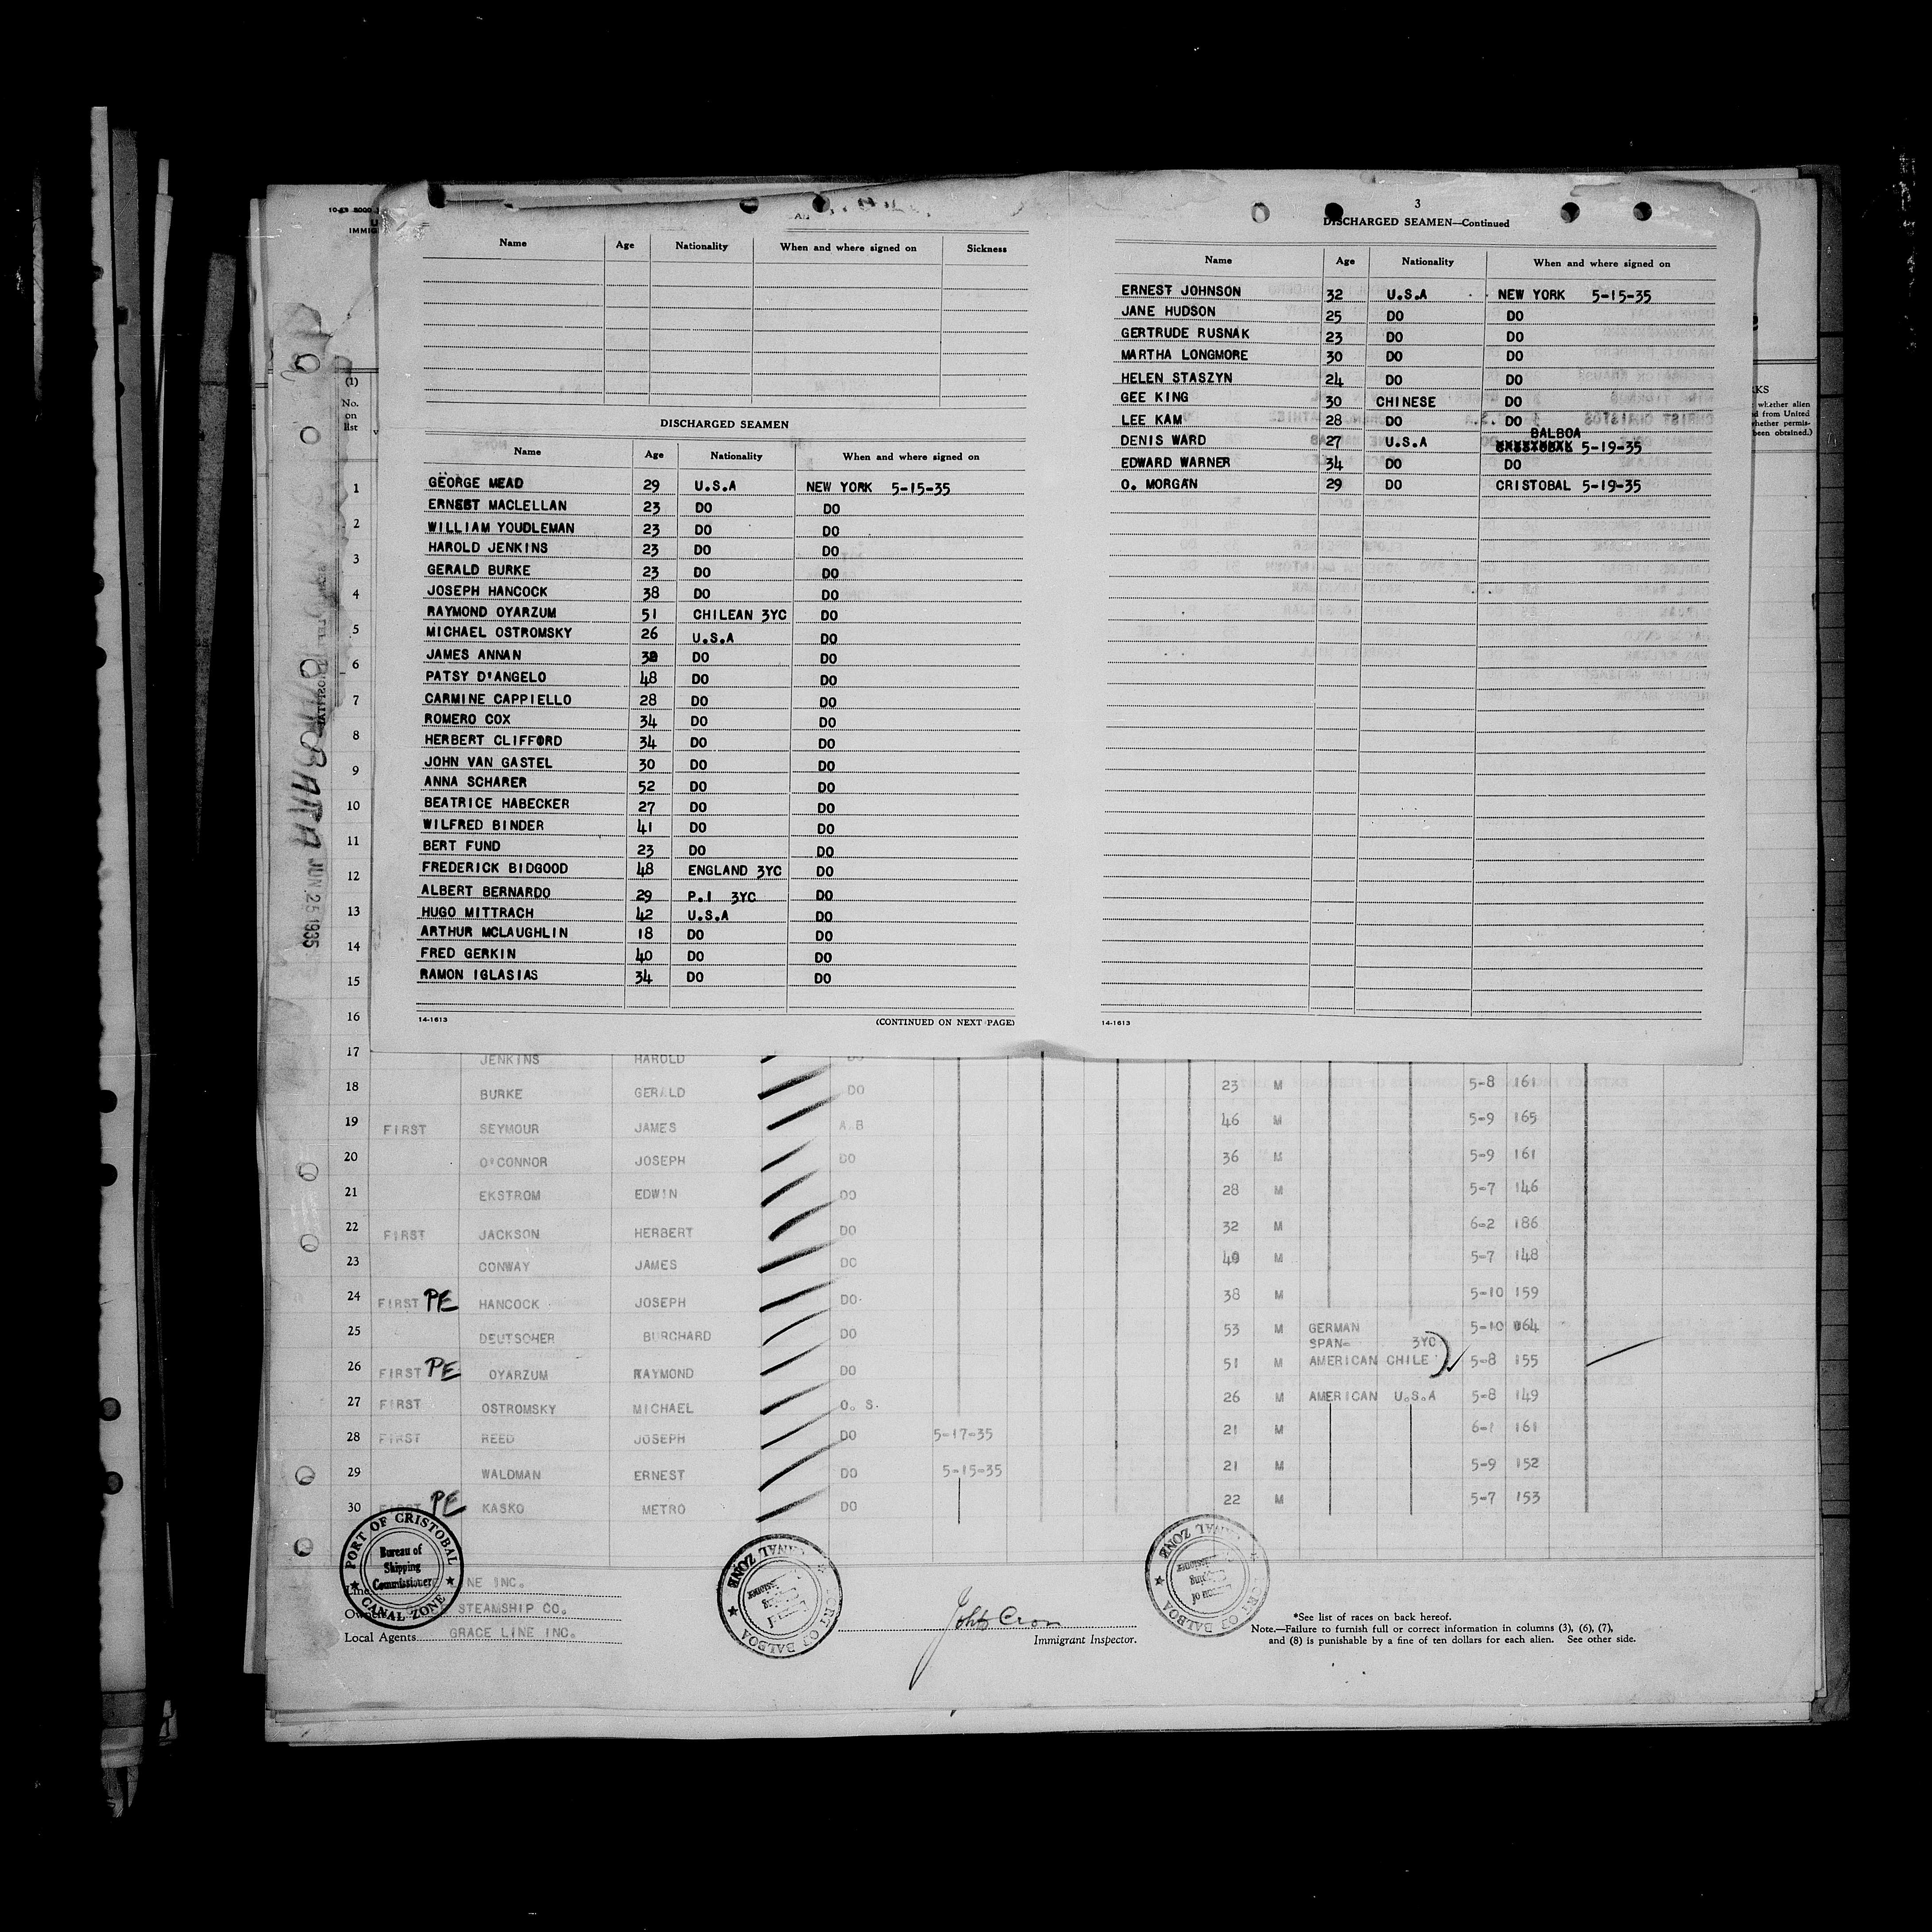 Name Age Nationality When and where signed on Sickness
DISCHARGED SEAMEN
Name Age Nationality When and where signed on
GEORGE MEAD 29 U.S.A NEW YORK 5-15-35
ERNEST MACLELLAN 23 DO DO
WILLIAM YOUDLEMAN 23 DO DO
HAROLD JENKINS 23 DO DO
GERALD BURKE 23 DO DO
JOSEPH HANCOCK 38 DO DO
RAYMOND OYARZUM 51 CHILEAN 3YC DO
MICHAEL OSTROMSKY 26 U.S.A DO
JAMES ANNAN DO DO
PATSY D'ANGELO 48 DO DO
CARMINE CAPPIELLO 28 DO DO
ROMERO COX 34 DO DO
HERBERT CLIFFORD 34 DO DO
JOHN VAN GASTEL 30 DO DO
ANNA SCHARER 52 DO DO
BEATRICE HABECKER 27 DO DO
WILFRED BINDER 41 DO DO
BERT FUND 23 DO DO
FREDERICK BIDGOOD 48 ENGLAND 3YC DO
ALBERT BERNARDO 29 P.I 3YC DO
HUGO MITTRACH 42 U.S.A DO
ARTHUR MCLAUGHLIN 18 DO DO
FRED GERKIN 40 DO DO
RAMON IGLASIAS 34 DO DO
14-1613 (CONTINUED ON NEXT PAGE)
3
DISCHARGED SEAMEN—Continued
Name Age Nationality When and where signed on
ERNEST JOHNSON 32 U.S.A NEW YORK 5-15-35
JANE HUDSON 25 DO DO
GERTRUDE RUSNAK 23 DO DO
MARTHA LONGMORE 30 DO DO
HELEN STASZYN 24 DO DO
GEE KING 30 CHINESE DO
LEE KAM 28 DO DO
BALBOA
DENIS WARD 27 U.S.A 5-19-35
EDWARD WARNER 34 DO DO
O. MORGAN 29 DO CRISTOBAL 5-19-35
14-1613
(1)
No.
on
list
1
2
3
4
5
6
7
8
9
10
11
12
13
14
15
16
JUN 25 1935
whether alien
d from United
whether permis-
been obtained.)
17 JENKINS HAROLD DO
18 BURKE GERALD DO 23 M 5-8 161
19 FIRST SEYMOUR JAMES A.B 46 M 5-9 165
20 O'CONNOR JOSEPH DO 36 M 5-9 161
21 EKSTROM EDWIN DO 28 M 5-7 146
22 FIRST JACKSON HERBERT DO 32 M 6-2 186
23 CONWAY JAMES DO 40 M 5-7 148
24 FIRST PE HANCOCK JOSEPH DO 38 M 5-10 159
25 DEUTSCHER BURCHARD DO 53 M GERMAN 5-10
SPAN- 3YC
26 FIRST PE OYARZUM RAYMOND DO 51 M AMERICAN CHILE 5-8 155
27 FIRST OSTROMSKY MICHAEL O. S. 26 M AMERICAN U.S.A 5-8 149
28 FIRST REED JOSEPH DO 5-17-35 21 M 6-1 161
29 WALDMAN ERNEST DO 5-15-35 21 M 5-9 152
30 FIRST PE KASKO METRO DO 22 M 5-7 153
PORT OF CRISTOBAL
Bureau of
Shipping
Commissioner
CANAL ZONE
PORT OF BALBOA
CANAL ZONE
PORT OF BALBOA
CANAL ZONE
Line NE INC.
Owners STEAMSHIP CO.
Local Agents GRACE LINE INC.
Immigrant Inspector.
*See list of races on back hereof.
Note.—Failure to furnish full or correct information in columns (3), (6), (7),
and (8) is punishable by a fine of ten dollars for each alien. See other side.